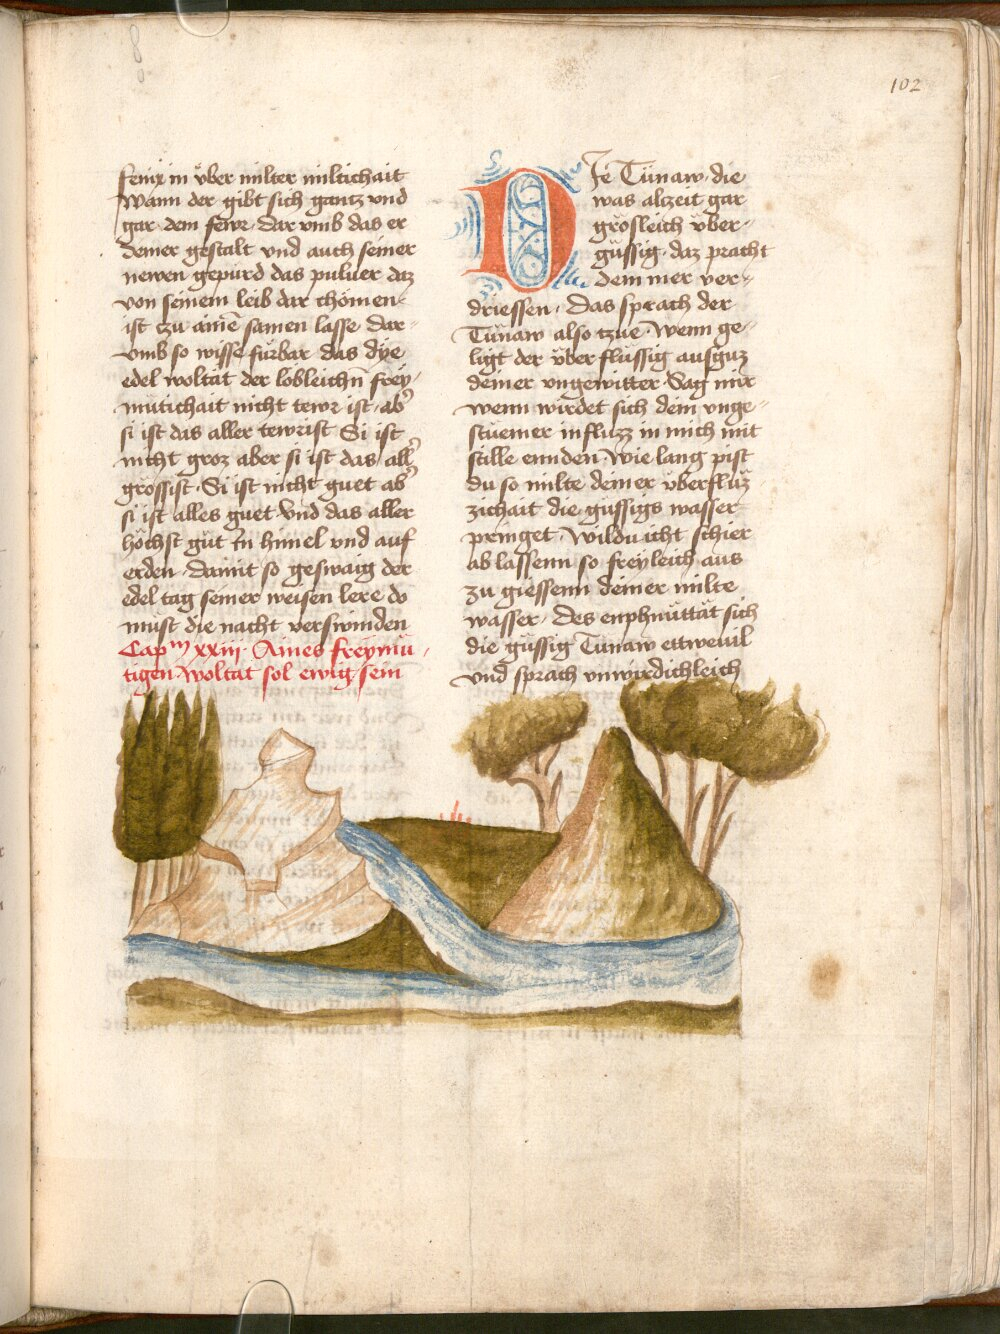 102
fenix in vber milter miltichait
wann der gibt sich gantz vnd
gar dem fewr. dar vmb das er
deiner gestalt vnd auch seiner
newen gepürd das puluer daz
von seinem leib dar chömen
ist tzu aine samen lasse Dar-
vmb so wisse fürbar das dye
edel woltat der lobleichn frey-
mütichait nicht tewr ist. ab'
si ist das aller tewrist Si ist
nicht groz aber si ist das all'
grössist. Si ist nicht guet ab'
si ist alles guet Vnd das aller
höchst güt In himel vnd auf
erden. Damit so geswaig der
edel tag seiner weisen lere do
must die nacht verswinden
Cap^m xxiij. Aines freymü-
tigen woltat sol ewig sein
DIe Tünaw. die
was altzeit gar
grösleich vber-
güssig. daz pracht
dem mer ver-
driessen. Das sprach der
Tünaw also tzue. Wenn ge-
ligt der vber flüssig ausguz
deiner vngewitter. Sag mir
wenn wirdet sich dein vnge-
stüemer influzz in mich mit
stille ennden. Wie lang pist
du so milte deiner vberflüz-
zichait die güssigs wasser
pringet. Wildu icht schier
ab lassenn so freyleich aus
zu giessenn deiner milte
wasser. Des enphmüttät sich
die güssig Tünaw ettweuil
vnd sprach vnwirdichleich